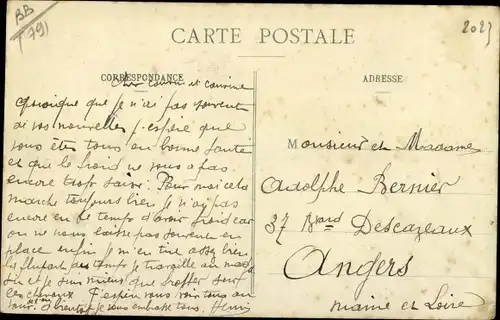 BB
T 791
2023
CARTE POSTALE
CORRESPONDANCE
ADRESSE
Cher cousin et cousine
quoique que je n'ai pas souvent
de vos nouvelles j'espère que
vous êtes tous en bonne santé
et que le froid ne vous a pas
encore trop saisi. Pour moi cela
marche toujours bien je n'ai pas
encore eu le temps d'avoir froid car
on ne nous laisse pas souvent en
place enfin je m'en tire assez bien
la plupart des temps je travaille au
et je suis mieux que
les chevaux J'espère vous voir tous au
jour. A bientôt je vous embrasse tous. Henri
Monsieur et Madame
Adolphe Bernier
37 Bard Descazeaux
Angers
Maine et Loire